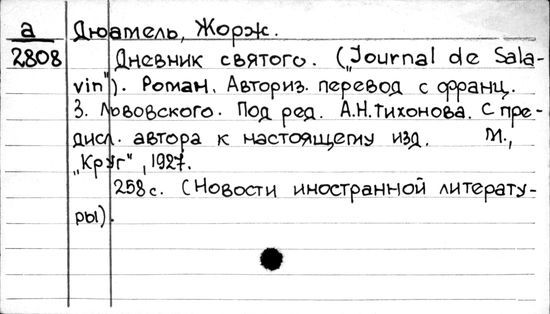 а Дюамель, Жорж.
2808 Дневник святого. („Journal de Sala-
vin"). Роман. Авториз. перевод с франц.
З. Львовского. Под ред. А.Н.Тихонова. С пре-
дисл. автора к настоящему изд. М.,
„Круг", 1927.
258 с. (Новости иностранной литерату-
ры).